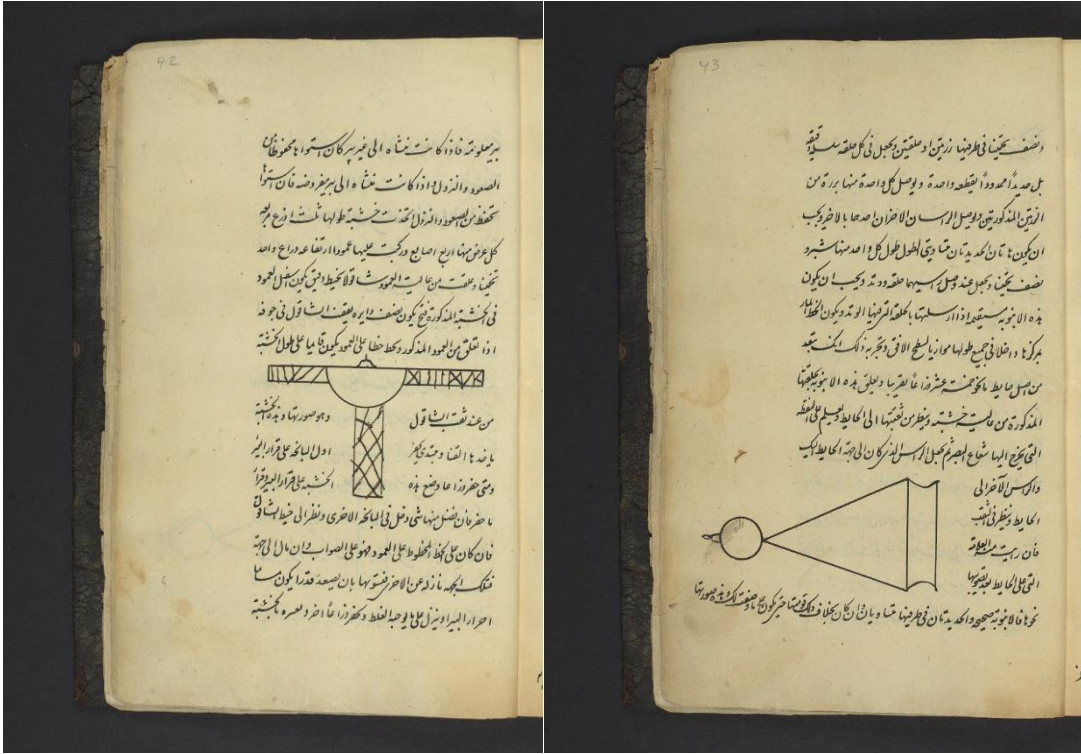 42
بير معلومة فاذا كانت منشاه الى غير بير كان استواها محفوظا من
الصعود والنزول واذا كانت منشاه الى بير مفروضه فان استواها
تحفظ من الصعود والنزول اتخذت خشبة طولها ثلث اذرع مربعه
كل عرض منها اربع اصابع وركبت عليها عمودا ارتفاعه ذراع واحد
تخمينا وعلقت من عاليت العمود شاقولا بخيط دقيق يكون اسفل العمود
فى الخشبة المذكورة فتح يكون نصف دايره يقف الشاقول فى جوفه
اذا تعلق من العمود المذكور وتخط خطا على العمود يكون قايما على طول الخشبة
من عند ثقب الشاقول وهو صورتها وهذه الخشبة
ياخذها القنا ويبتدى اول البالخه على قرار البير
ومتى حفر ذراعا وضع هذه الخشبة على قرار البير وقرار
ما حفر فان فضل منها شى دخل فى البالخه الاخرى ونظر الى خيط الشاقول
فان كان على الخط المخطوط على العمود فهو على الصواب وان مال الى جهة
فتلك الجهه نازله عن الاخرى فتسويها بان يصعد قدرا يكون
البير او ينزل على ما يوجبه الغلط ويحفر ذراعا اخر بالخشبة
43
ونصف تخمينا فى طرفيها زرفين او حلقتين وتجعل فى كل حلقه
بل حديدا ممدودا بقطعه واحدة ويوصل كل واحدة منها بزرة من
الزرتين المذكورتين ويوصل الراسان الاخران احدهما بالاخر ويجب
ان يكون هاتان الحديدتان متساويتى الطول طول كل واحد منها شبر و
نصف تخمينا وتجعل عند وصل راسيهما حلقه ووتد ويجب ان يكون
هذه الانبوبة مستقيمه اذا ارسلتها بالحلقه التى فيها الوتد ويكون الخط المار
بمركزها داخلا فى جميع طولها موازيا لسطح الافق وتجربه ذلك انك تبعد
من اصل حايط نحو خمسة عشر ذراعا تقريبا وتعلق هذه الانبوبة بحلقتها
المذكورة من عاليت خشبه وينظر من ثقبتها الى الحايط وتعلم على النقطه
التى يخرج اليها شعاع البصر ثم تجعل الراس الذى كان الى جهة الحايط اليك
والراس الاخر الى
الحايط وينظر فى الثقب
فان رايت منه العلامة
التى على الحايط بعد تصويبها
نحوها فالانبوبة صحيحه والحديدتان فى طرفيها متساويان وان كان بخلاف ذلك قومتها حتى يكون على ما وصفت لك وهذه صورتها